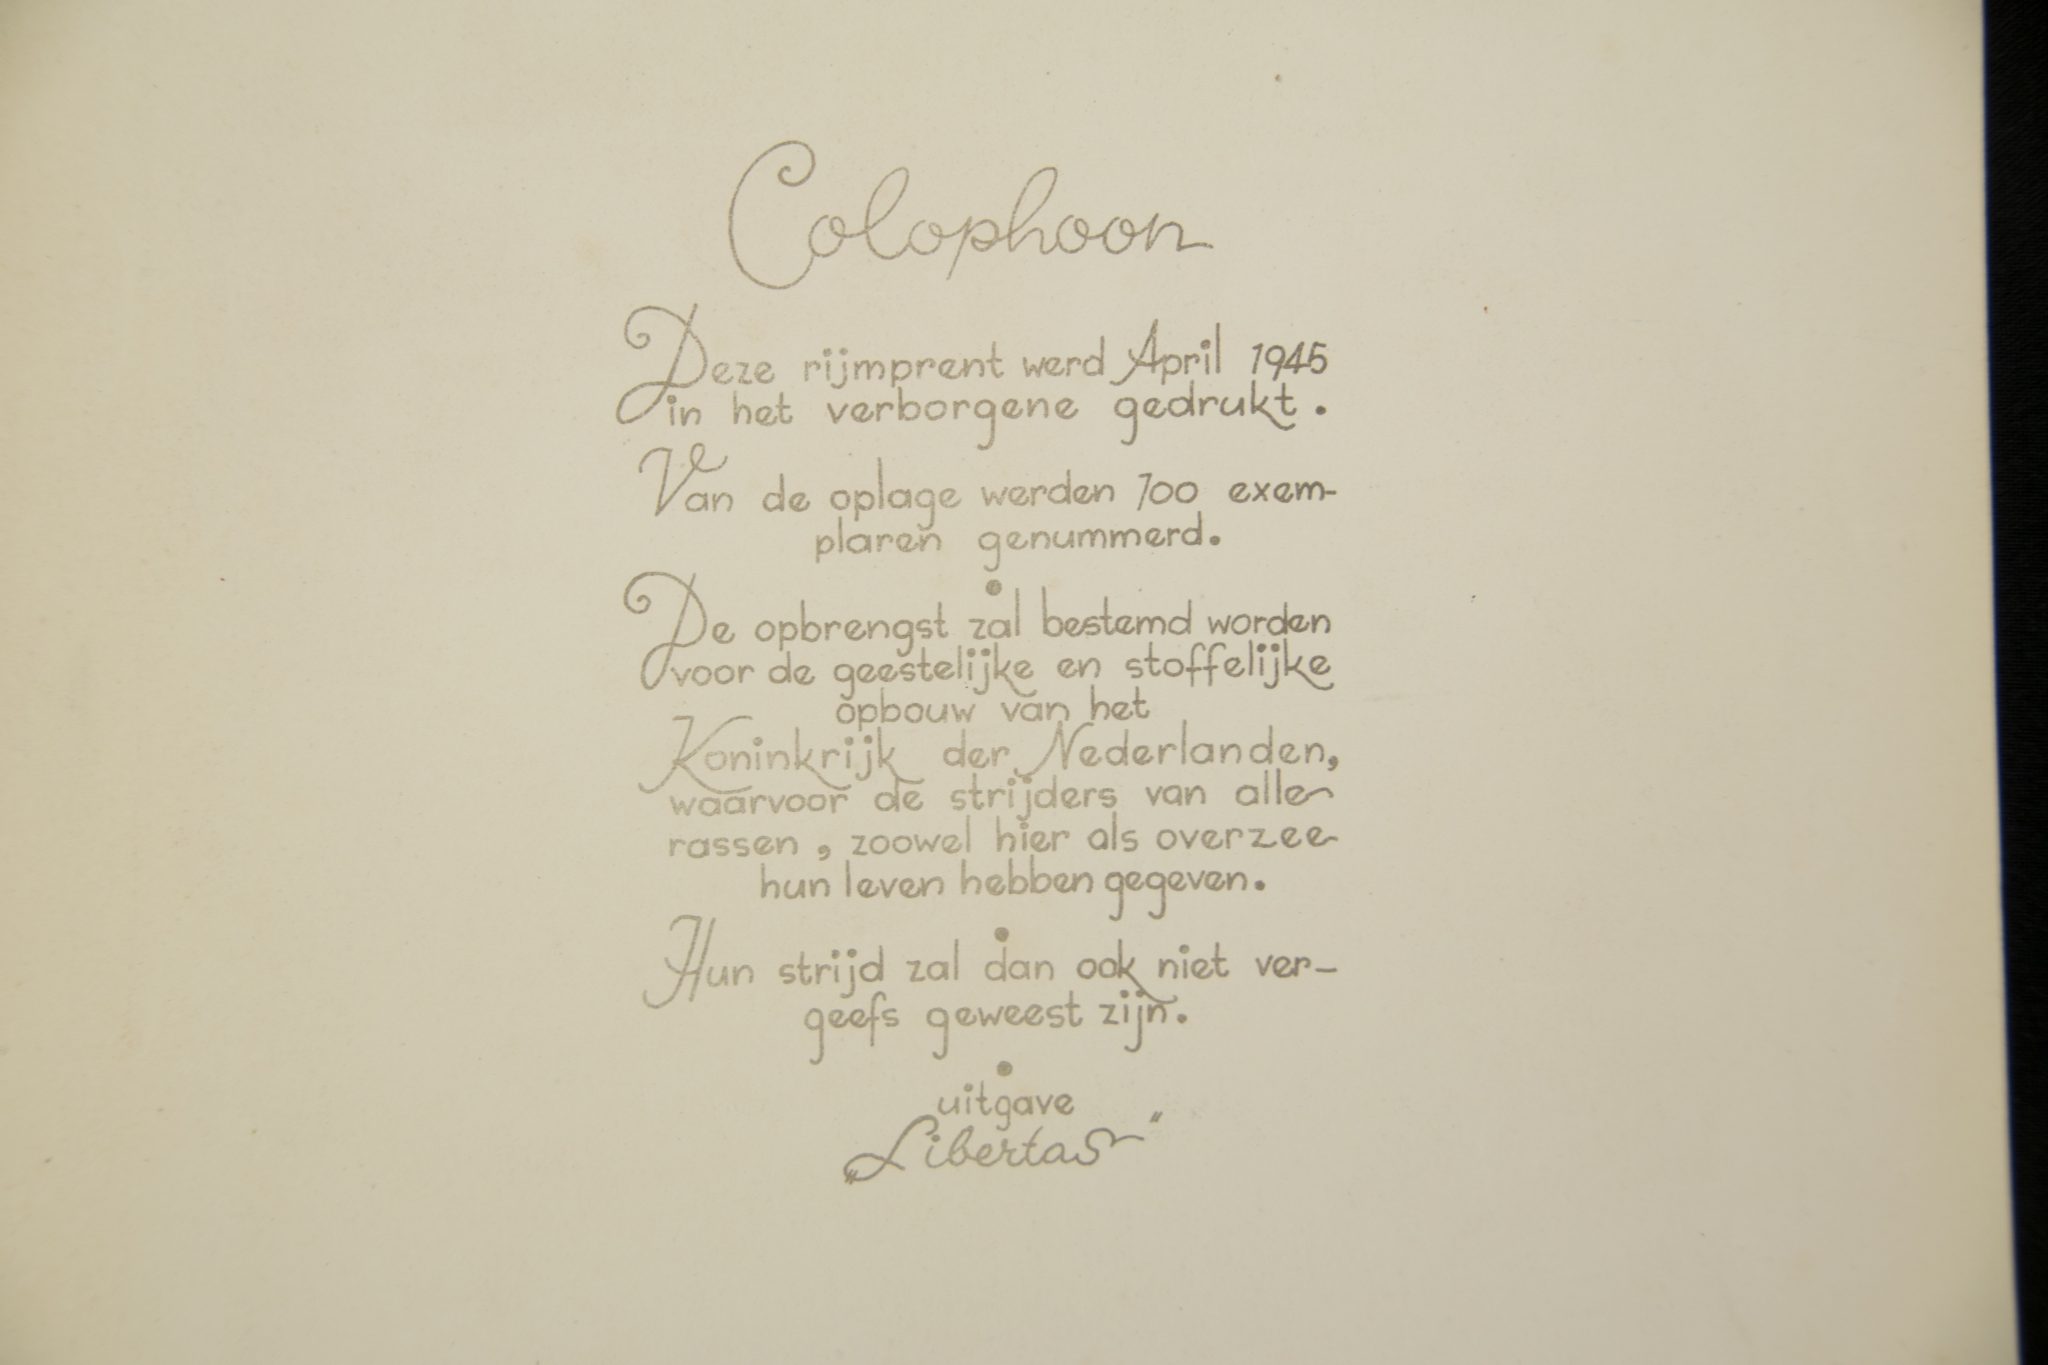 Colophoon
Deze rijmprent werd April 1945
in het verborgene gedrukt.
Van de oplage werden 100 exem-
plaren genummerd.
De opbrengst zal bestemd worden
voor de geestelijke en stoffelijke
opbouw van het
Koninkrijk der Nederlanden,
waarvoor de strijders van alle
rassen, zoowel hier als overzee
hun leven hebben gegeven.
Hun strijd zal dan ook niet ver-
geefs geweest zijn.
uitgave
„Libertas"